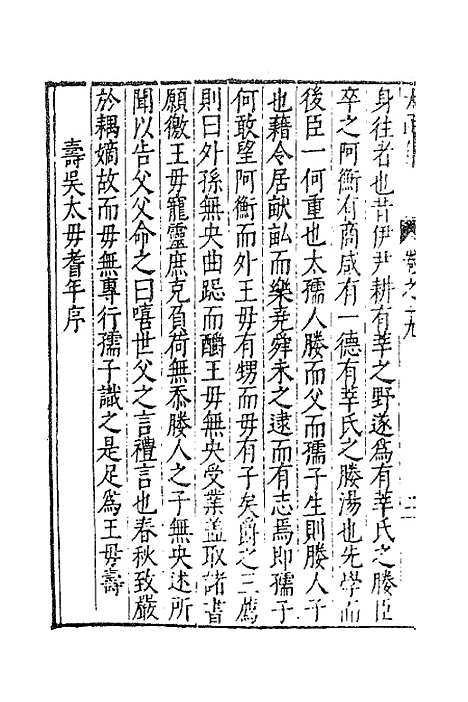 卷之十九
身往者也昔伊尹耕有莘之野遂爲有莘氏之媵臣
卒之阿衡有商咸有一德有莘氏之媵湯也先學而
後臣一何重也太孺人媵而父而孺子生則媵人子
也藉令居畎畝而樂堯舜未之逮而有志焉即孺子
何敢望阿衡而外王毋有甥而毋有子矣爵之三薦
則曰外孫無央曲跽而酳王毋無央受業葢取諸書
願徼王毋寵靈庶克負荷無忝媵人之子無央述所
聞以告父父命之曰嘻世父之言禮言也春秋致嚴
於耦嫡故而毋無專行孺子識之是足爲王毋壽
壽吳太毋耆年序